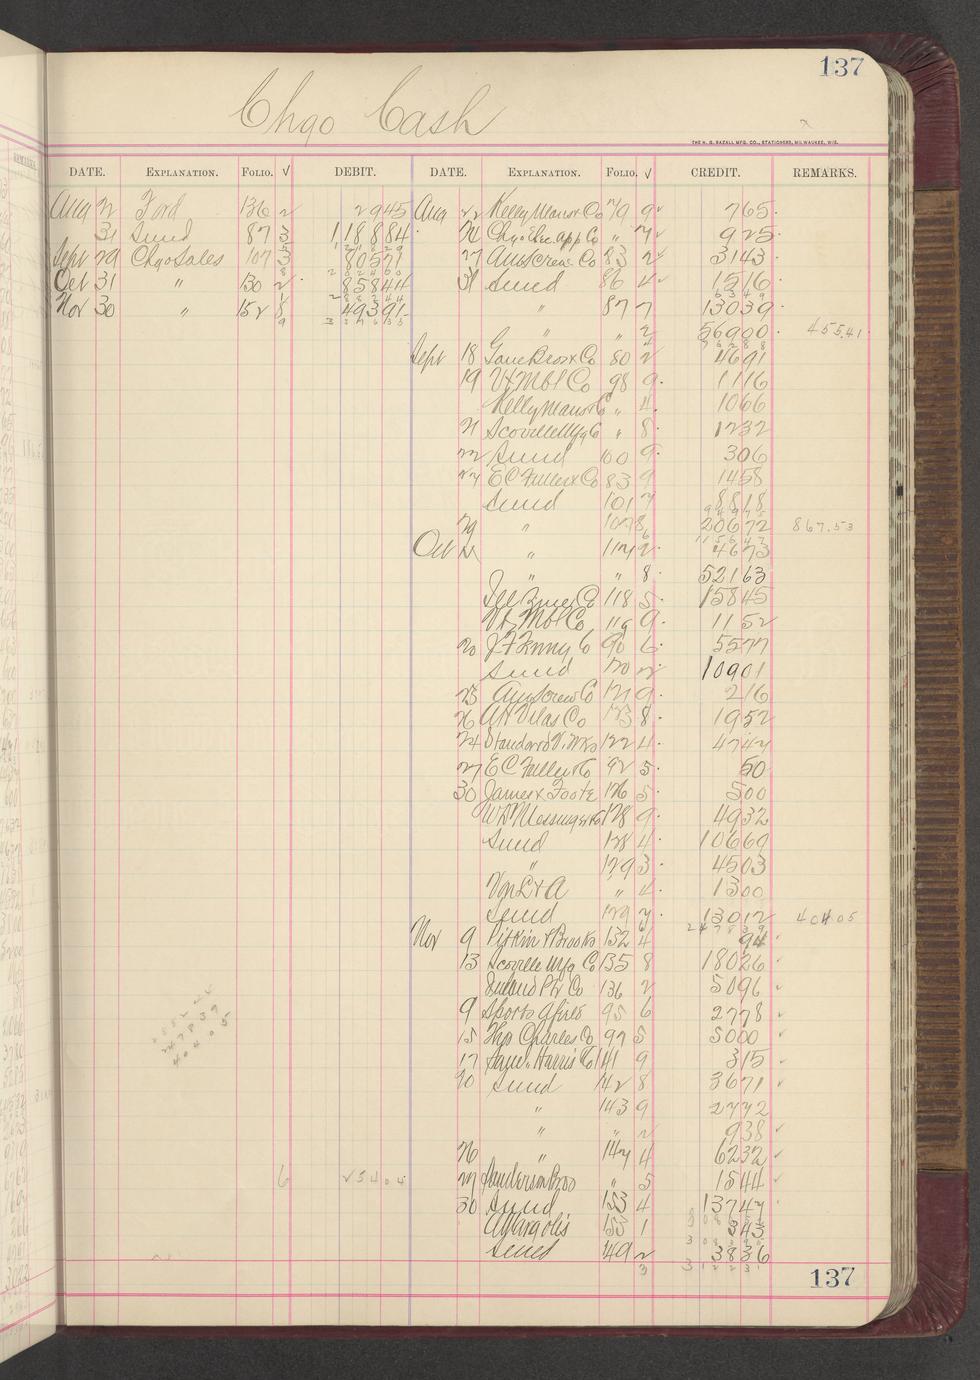 137
Chgo Cash
THE H. G. RAZALL MFG. CO., STATIONERS, MILWAUKEE, WIS.
DATE. EXPLANATION. FOLIO. √ DEBIT. DATE. EXPLANATION. FOLIO. √ CREDIT. REMARKS.
Aug 22 Ford 136 2 2945 Aug 22 Kelly Maus & Co 79 9 765
31 Sund 87 3 118884 24 Chgo Elec app Co " 7 925
Sept 29 Chgo Sales 107 3 80571 27 Am Screw Co 83 2 3143
Oct 31 " 130 2 85844 31 Sund 86 4 1516
Nov 30 " 152 8 49391 " 87 7 13039
" " 2 56900 455.41
Sept 18 Gane Bros & Co 80 2 4691
19 Vt Mbl Co 98 9 1116
Kelly Maus & Co " 4 1066
21 Scoville Mfg Co " 8 1232
22 Sund 100 9 306
24 E C Fuller & Co 83 9 1458
Sund 101 7 8818
29 " 107 8 20672 867.53
Oct " 114 2 4673
" " 8 52163
Co 118 5 15845
Vt Mbl Co 116 9 1152
20 J F Co 90 6 5577
Sund 120 2 10901
25 Am Screw Co 121 9 216
26 A H Vilas Co 123 8 1952
24 Standard V. Wks 122 4 4744
27 E C Fuller & Co 92 5 50
30 James & Foote 126 5 500
W D Messinger & Co 128 9 4932
Sund 128 4 10669
" 129 3 4503
" 4 1300
Sund 129 7 13012 404.05
Nov 9 Pitkin & Brooks 132 4 94
13 Scoville Mfg Co 135 8 18026
Inland Ptr Co 136 2 5096
9 Sports Afield 95 6 2778
15 Thp Charles Co 97 5 5000
17 Harris Co 141 9 315
20 Sund 142 8 3671
" 143 9 2772
" " 2 938
26 " 147 4 6232
27 Sanderson Bros " 5 1544
30 Sund 153 4 13747
A Margolis 153 1 343
Sund 149 2 3836
137